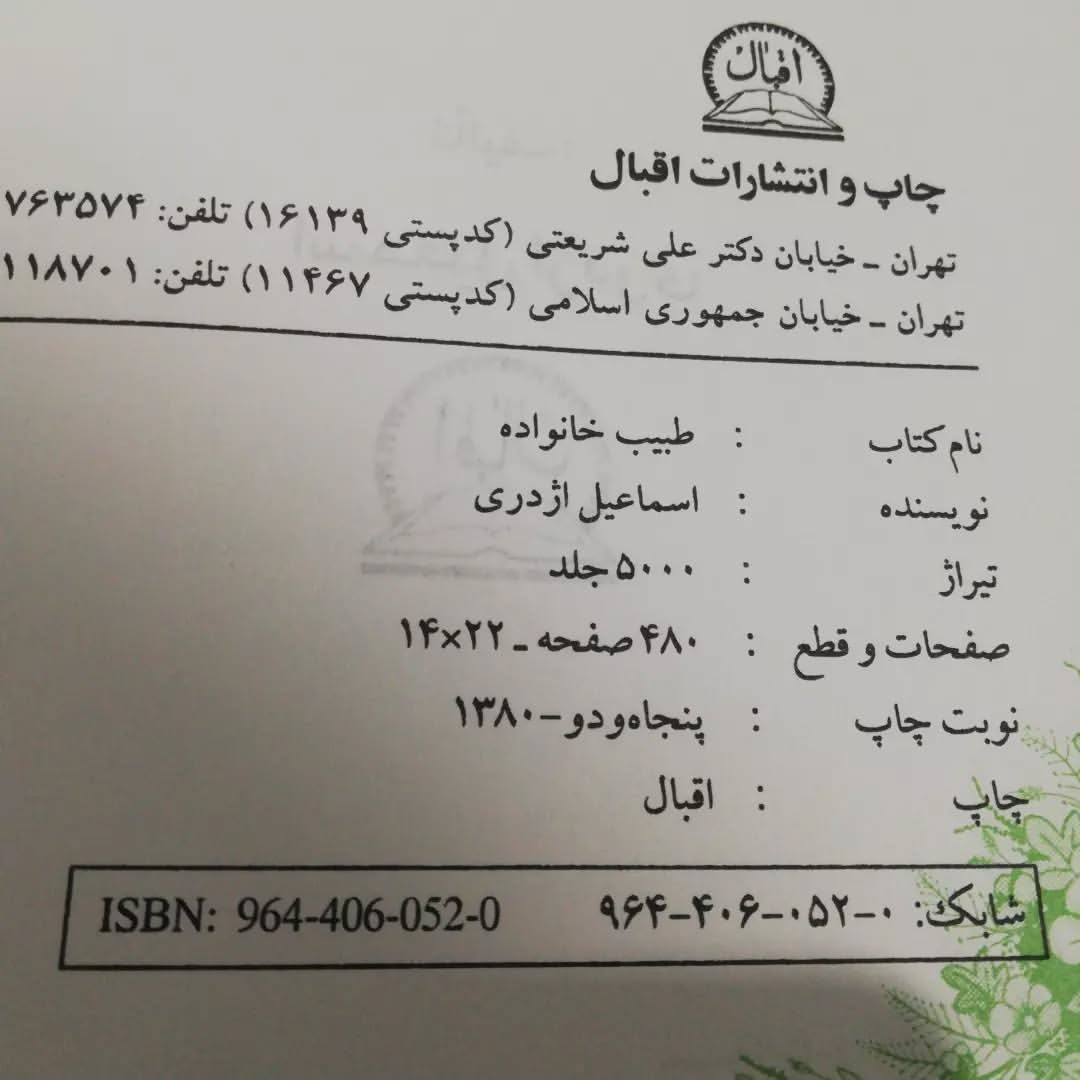 اقبال
چاپ و انتشارات اقبال
تهران ـ خیابان دکتر علی شریعتی (کدپستی ۱۶۱۳۹) تلفن: ۷۶۳۵۷۴
تهران ـ خیابان جمهوری اسلامی (کدپستی ۱۱۴۶۷) تلفن: ۱۱۸۷۰۱
نام کتاب : طبیب خانواده
نویسنده : اسماعیل اژدری
تیراژ : ۵۰۰۰ جلد
صفحات و قطع : ۴۸۰ صفحه ـ ۲۲×۱۴
نوبت چاپ : پنجاه‌و‌دو – ۱۳۸۰
چاپ : اقبال
شابک: ۰-۰۵۲-۴۰۶-۹۶۴ ISBN: 964-406-052-0